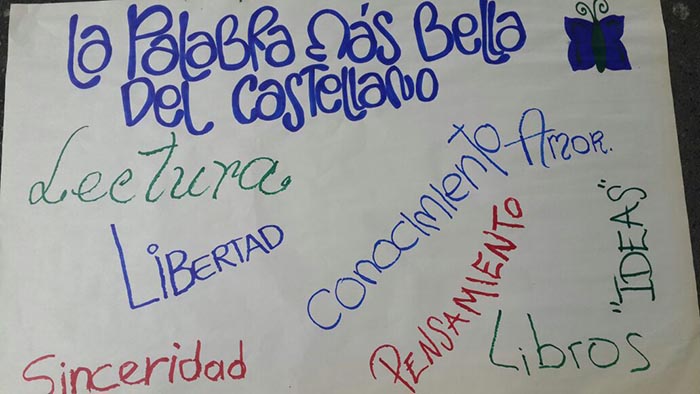 La Palabra más Bella
Del Castellano
Lectura
Conocimiento
Amor.
Libertad
PENSAMIENTO
"IDEAS"
Sinceridad
Libros